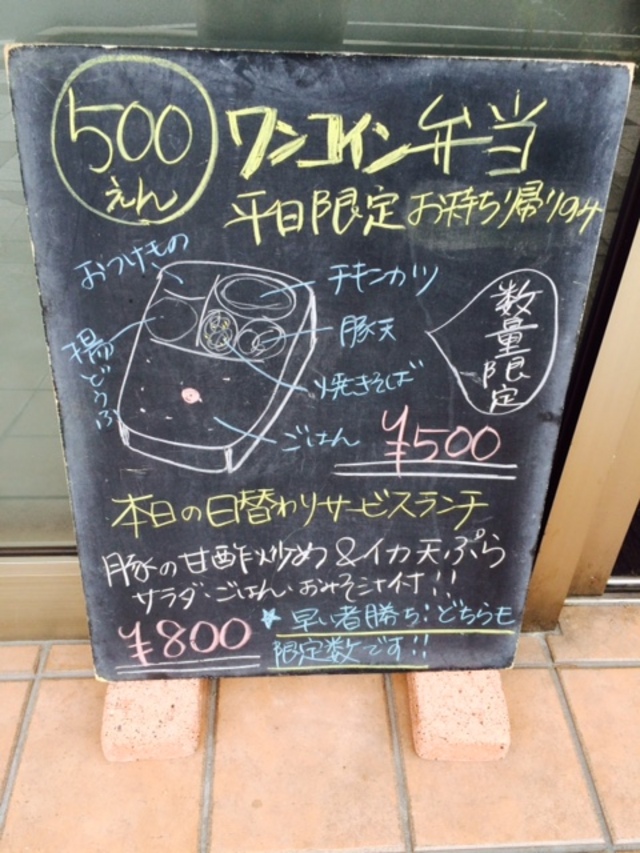 500
えん
ワンコイン弁当
平日限定お持ち帰りのみ
おつけもの
チキンカツ
豚天
揚どうふ
焼きそば
ごはん
数量限定
¥500
本日の日替わりサービスランチ
豚の甘酢炒め&イカ天ぷら
サラダ・ごはん・おみそ汁付!!
¥800
★早い者勝ち:どちらも
限定数です!!